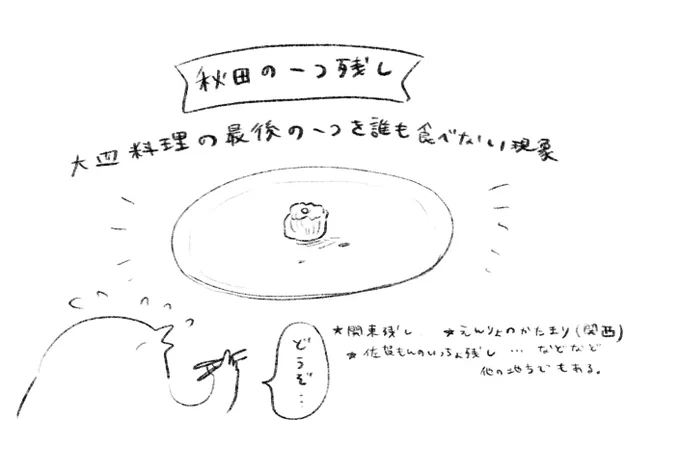 秋田の一つ残し
大皿料理の最後の一つを誰も食べない現象
どうぞ…
★関東残し ★えんりょのかたまり(関西)
★佐賀もんのいっちょ残し … などなど
他の地方でもある。